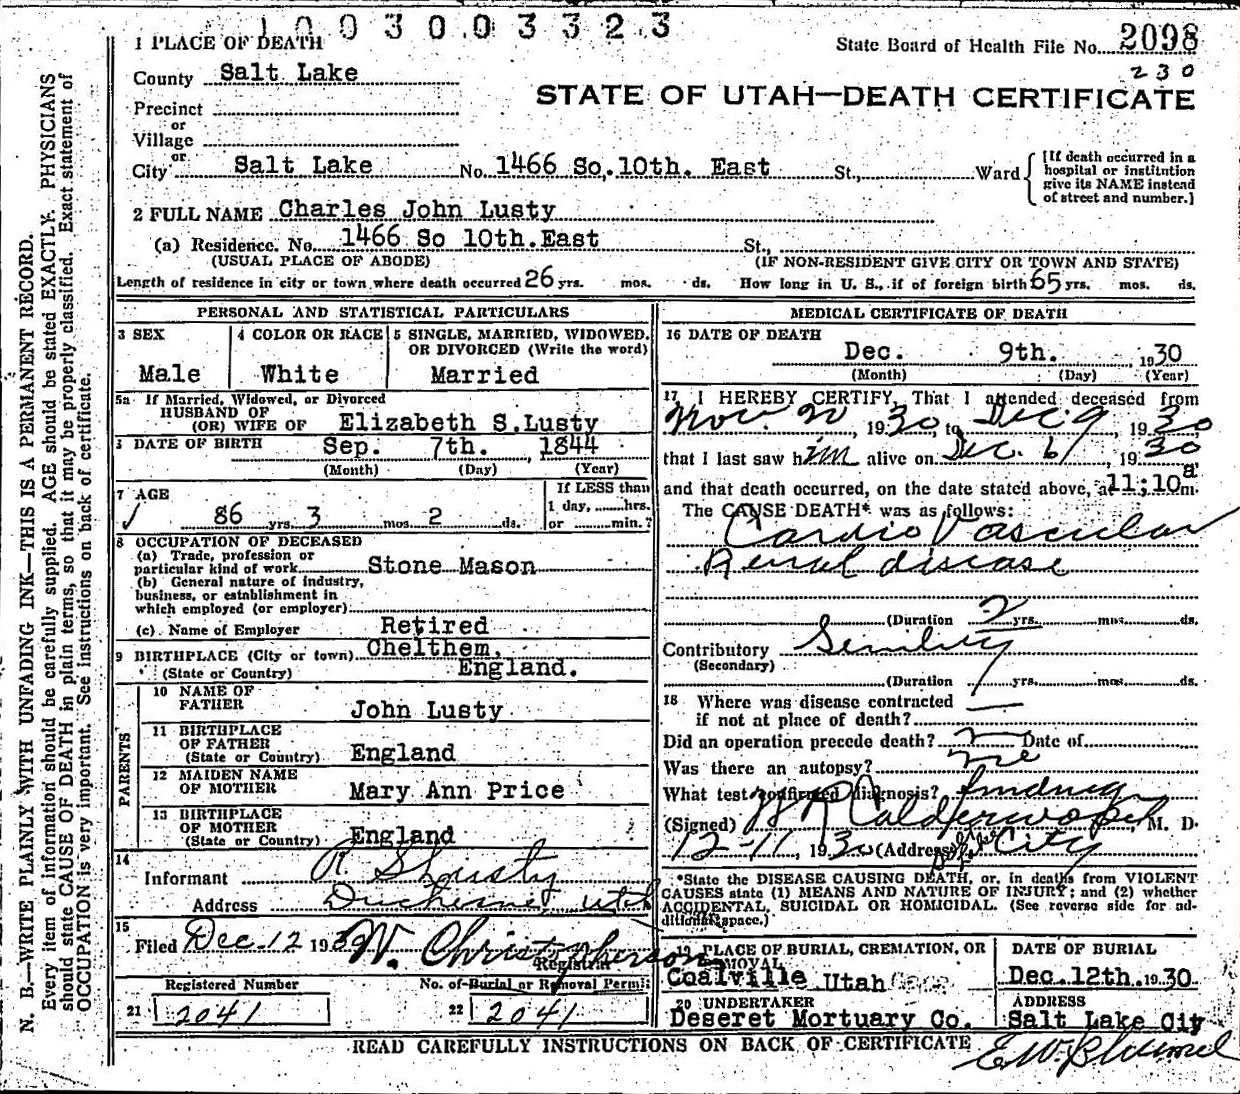 1003003323
1 PLACE OF DEATH
State Board of Health File No. 2098
230
County Salt Lake
STATE OF UTAH—DEATH CERTIFICATE
Precinct
or
Village
or
City Salt Lake No. 1466 So. 10th. East St., Ward
[If death occurred in a hospital or institution give its NAME instead of street and number.]
2 FULL NAME Charles John Lusty
(a) Residence. No. 1466 So 10th. East St.,
(USUAL PLACE OF ABODE) (IF NON-RESIDENT GIVE CITY OR TOWN AND STATE)
Length of residence in city or town where death occurred 26 yrs. mos. ds. How long in U. S., if of foreign birth 65 yrs. mos. ds.
PERSONAL AND STATISTICAL PARTICULARS
3 SEX
Male
4 COLOR OR RACE
White
5 SINGLE, MARRIED, WIDOWED, OR DIVORCED (Write the word)
Married
5a If Married, Widowed, or Divorced
HUSBAND OF
(OR) WIFE OF Elizabeth S. Lusty
DATE OF BIRTH Sep. 7th. 1844
(Month) (Day) (Year)
7 AGE
86 yrs. 3 mos. 2 ds.
If LESS than
1 day, hrs.
or min.?
8 OCCUPATION OF DECEASED
(a) Trade, profession or
particular kind of work Stone Mason
(b) General nature of industry,
business, or establishment in
which employed (or employer)
(c) Name of Employer Retired
9 BIRTHPLACE (City or town) Chelthem.
(State or Country) England.
PARENTS
10 NAME OF
FATHER John Lusty
11 BIRTHPLACE
OF FATHER
(State or Country) England
12 MAIDEN NAME
OF MOTHER Mary Ann Price
13 BIRTHPLACE
OF MOTHER
(State or Country) England
14
Informant
Address Duchesne, Utah
15
Filed Dec. 12 1930 W. Christopherson
Registrar
Registered Number
21 2041
No. of Burial or Removal Permit
22 2041
MEDICAL CERTIFICATE OF DEATH
16 DATE OF DEATH
Dec. 9th. 1930
(Month) (Day) (Year)
17 I HEREBY CERTIFY, That I attended deceased from
Nov. 1930, to Dec 9, 1930
that I last saw him alive on Dec. 6, 1930
and that death occurred, on the date stated above, at 11:10 a m.
The CAUSE DEATH* was as follows:
Cardio Vascular
Renal disease
(Duration 2 yrs. mos. ds.
Contributory Senility
(Secondary)
(Duration yrs. mos. ds.
18 Where was disease contracted
if not at place of death?
Did an operation precede death? Date of
Was there an autopsy? no
What test confirmed diagnosis? findings
(Signed) Calderwood, M. D.
12-11, 1930 (Address) Salt Lake City
*State the DISEASE CAUSING DEATH, or, in deaths from VIOLENT
CAUSES state (1) MEANS AND NATURE OF INJURY; and (2) whether
ACCIDENTAL, SUICIDAL OR HOMICIDAL. (See reverse side for ad-
ditional space.)
19 PLACE OF BURIAL, CREMATION, OR
REMOVAL
Coalville Utah
DATE OF BURIAL
Dec. 12th. 1930
20 UNDERTAKER
Deseret Mortuary Co.
ADDRESS
Salt Lake City
READ CAREFULLY INSTRUCTIONS ON BACK OF CERTIFICATE
N. B.—WRITE PLAINLY WITH UNFADING INK—THIS IS A PERMANENT RECORD.
Every item of information should be carefully supplied. AGE should be stated EXACTLY. PHYSICIANS
should state CAUSE OF DEATH in plain terms, so that it may be properly classified. Exact statement of
OCCUPATION is very important. See instructions on back of certificate.